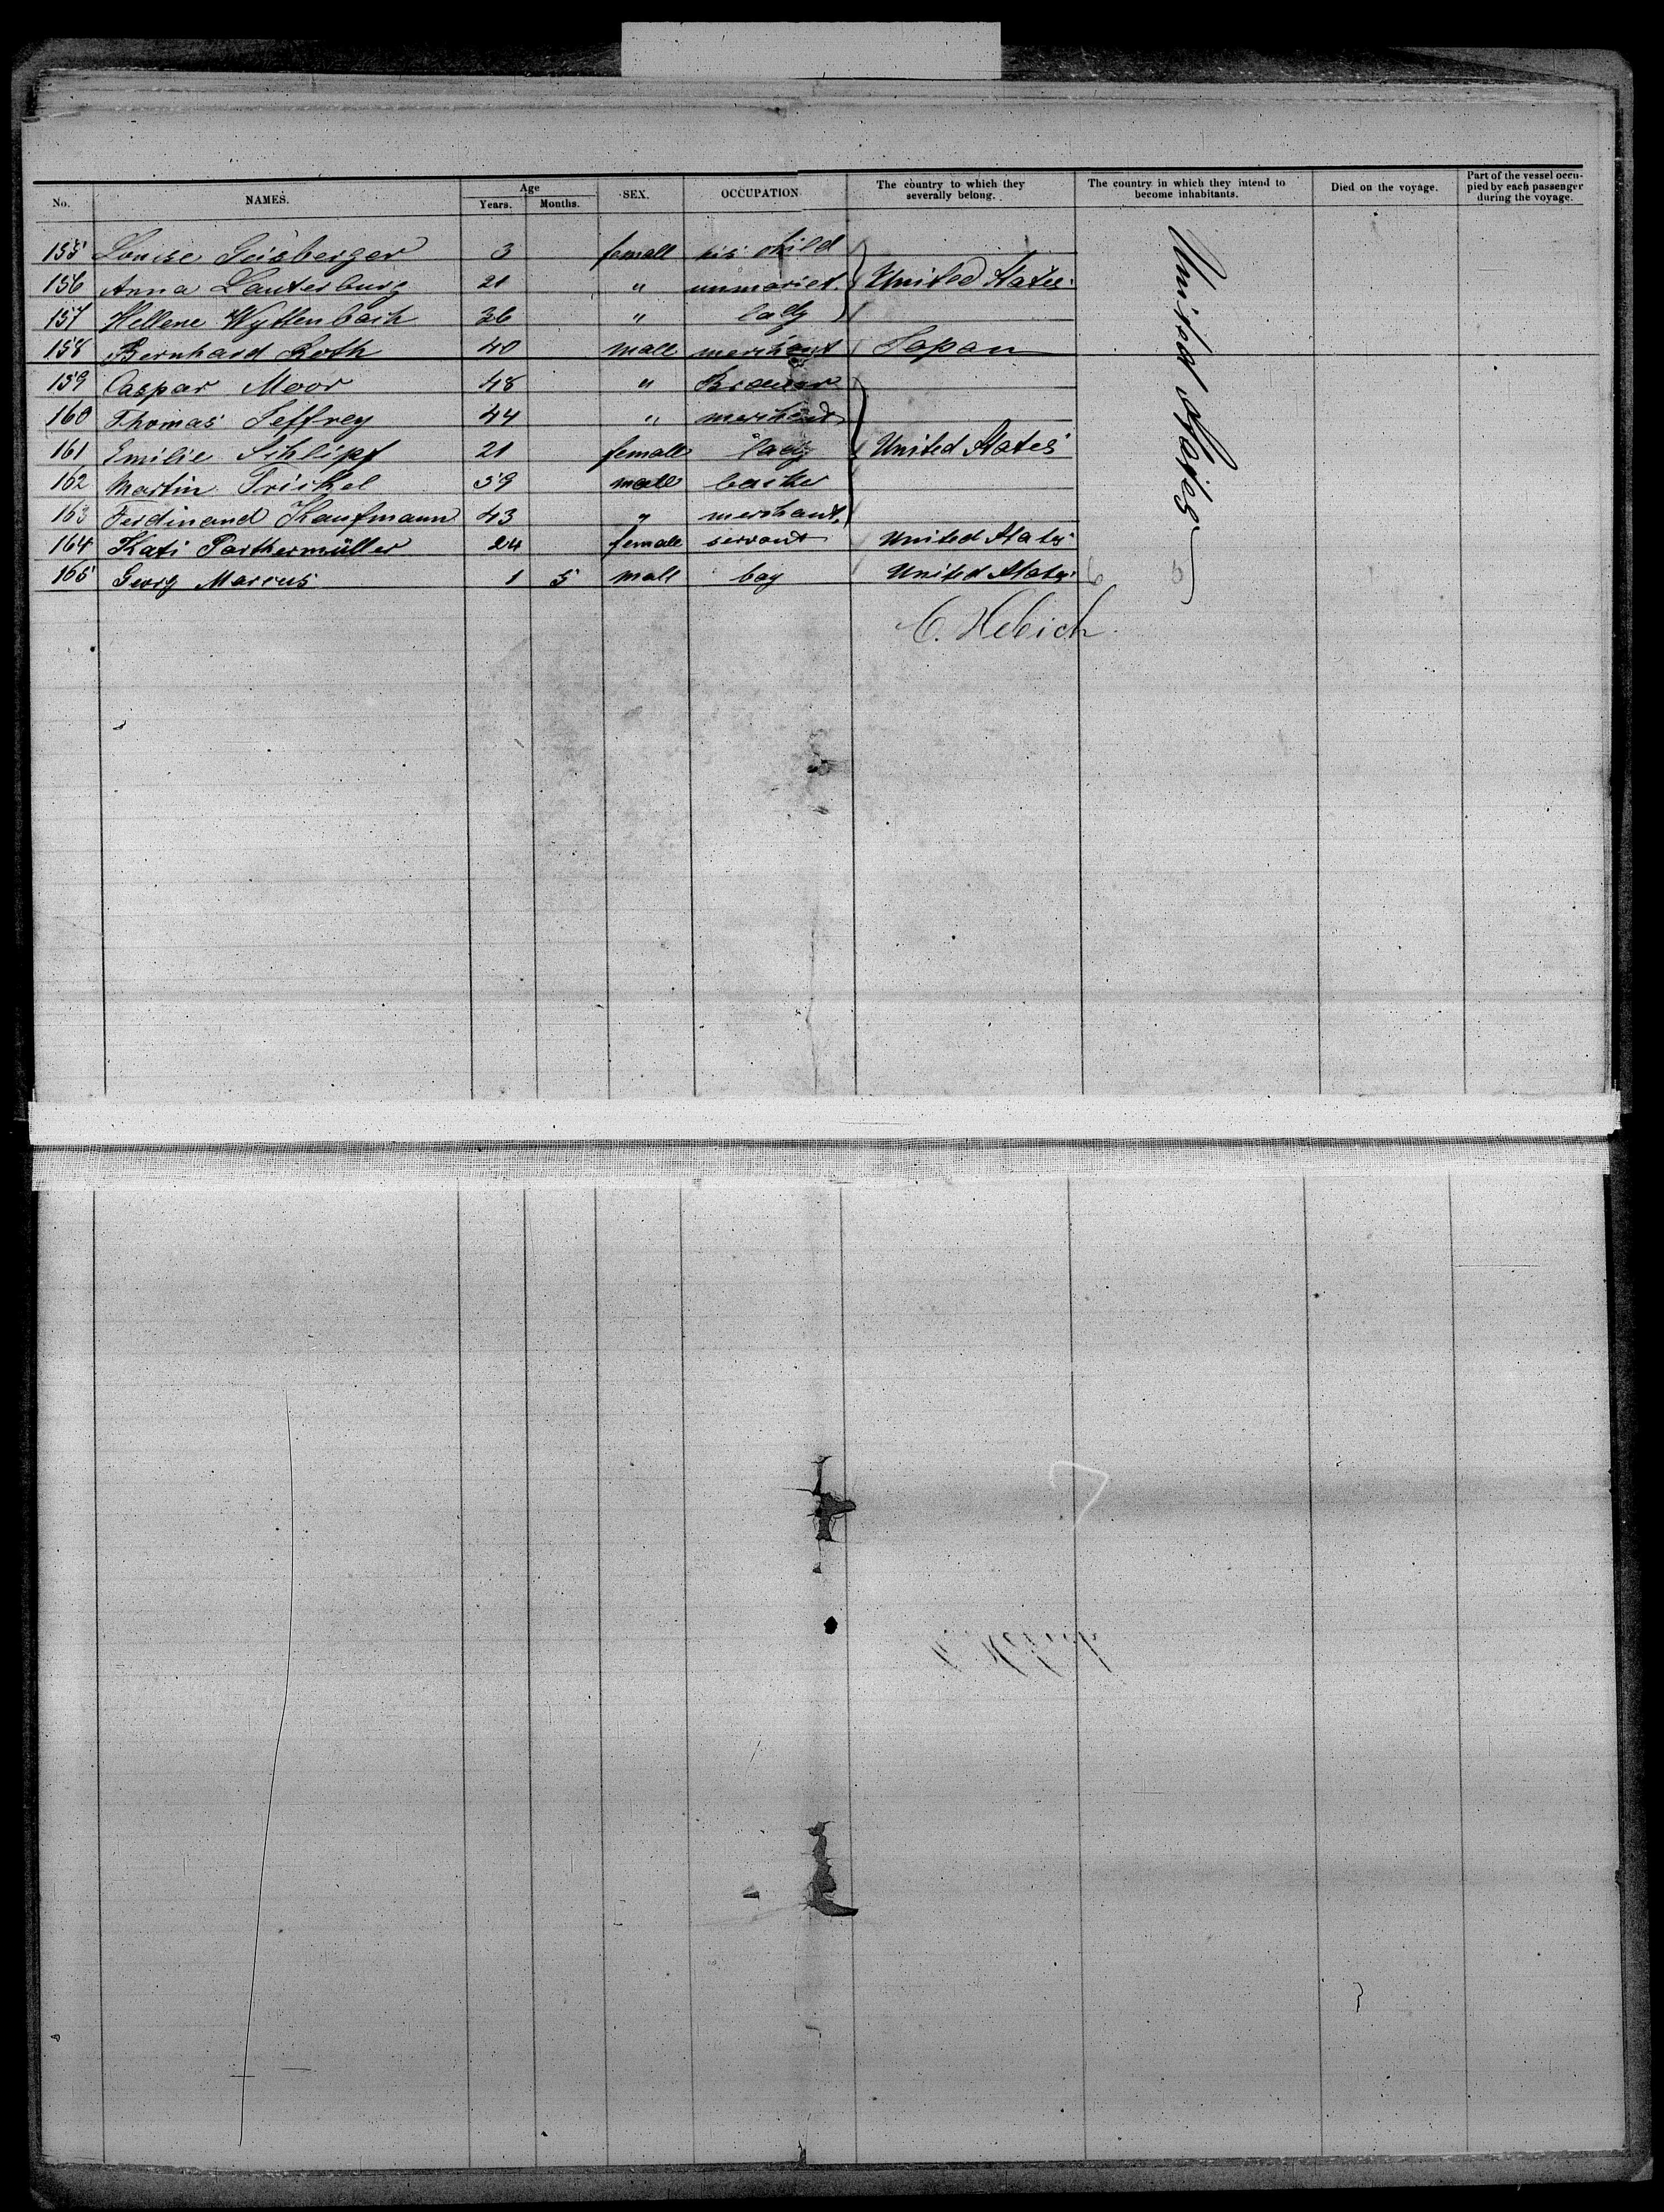 No. NAMES. Age Years. Months. SEX. OCCUPATION The country to which they severally belong. The country in which they intend to become inhabitants. Died on the voyage. Part of the vessel occupied by each passenger during the voyage.
155 Louise Geisberger 3 female his child
156 Anna Lauterburg 21 " unmariet. United States
157 Hellene Wyttenbach 36 " lady
158 Bernhard Roth 40 male merchant Japan
159 Caspar Moor 48 " Brewer
160 Thomas Jeffrey 44 " merchant
161 Emilie Schlipf 21 female lady United States
162 Martin 59 male
163 Ferdinand Kaufmann 43 " merchant.
164 Kati Parthermüller 24 female servant United States
165 Georg Marcus 1 5 male boy United States
United States
C. Hebich